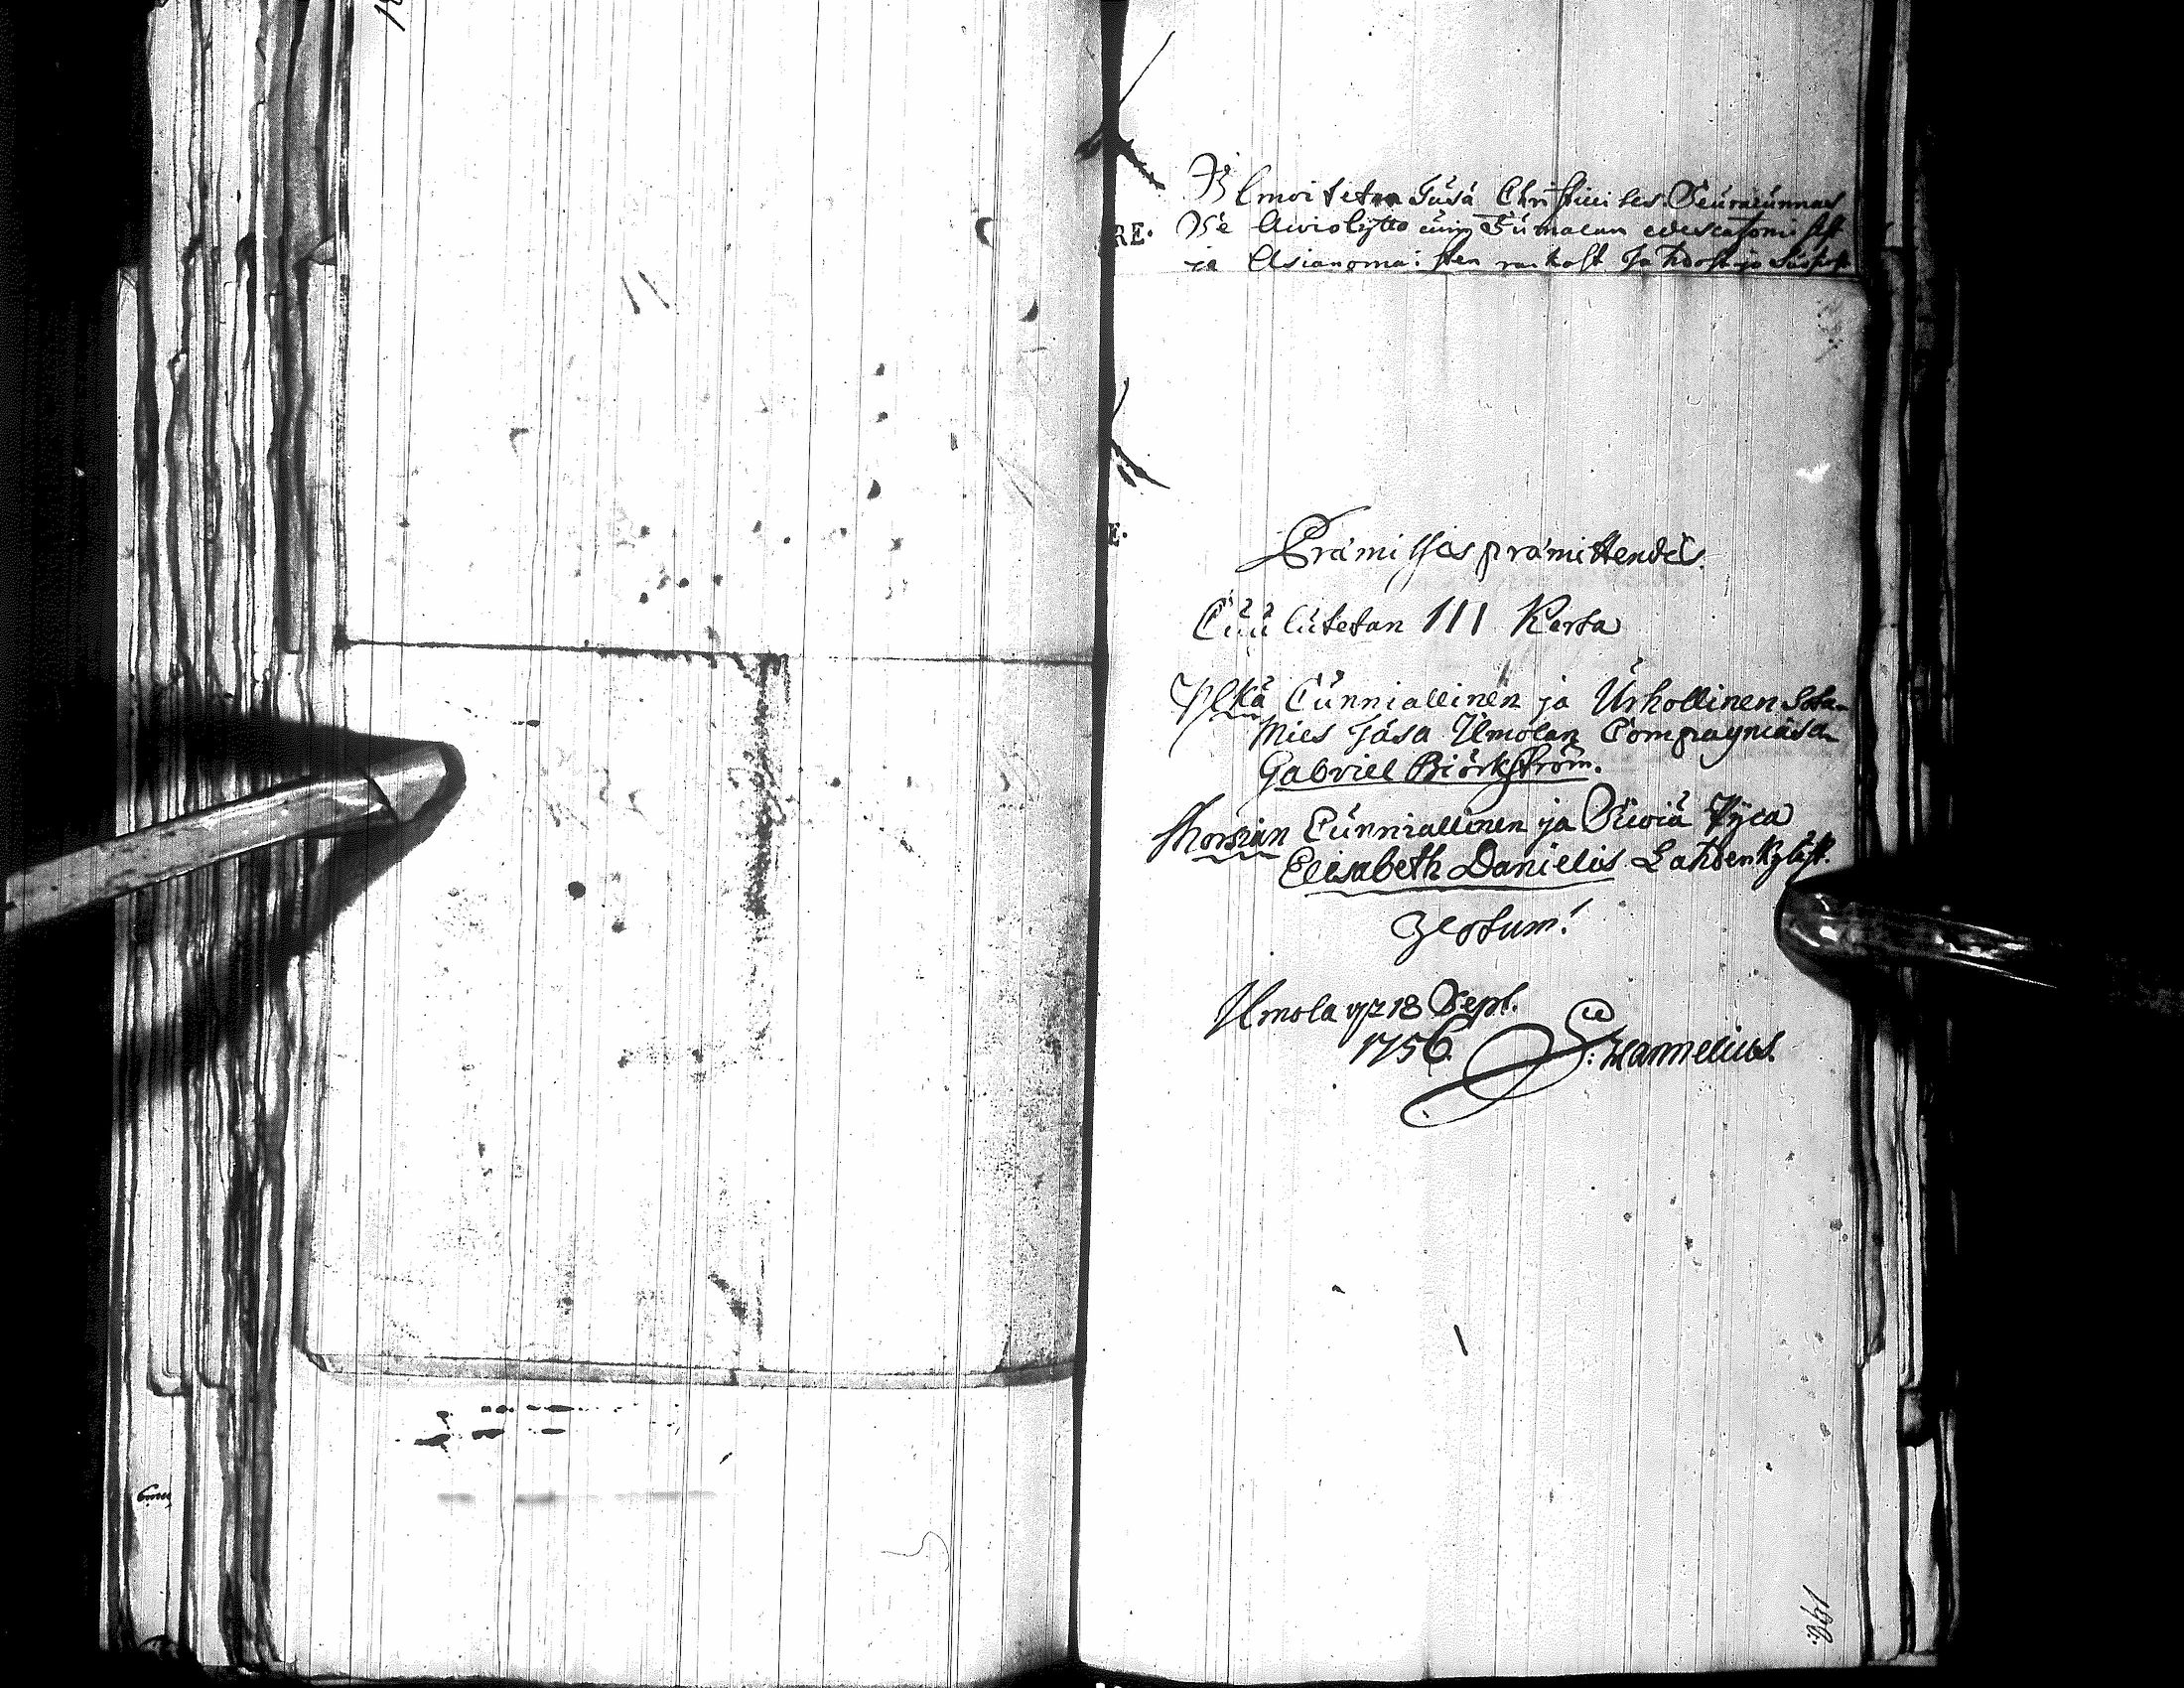 Ilmoitetan Täsä Christilises Seuracunnas
Se Awiolijtto cuin Jumalan edescatzomisest
ja Asianomaisten rackast Tahdost ja
RE.
E.
Præmissis præmittendis.
Cuulutetan III Kerta
Ylkä Cunniallinen ja Urhollinen Sota-
Mies Täsä Ilmolan Compagniasa
Gabriel Biörkström.
Morsian Cunniallinen ja Siwiä Pijca
Elisabeth Danielis Lahdenkyläst.
Votum!
Ilmola 18 Sept.
1756. Wannelius.